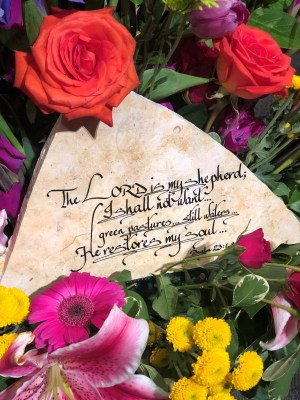 The LORD is my shepherd;
I shall not want...
green pastures... still waters...
He restores my soul...
Psalm 23:1-3